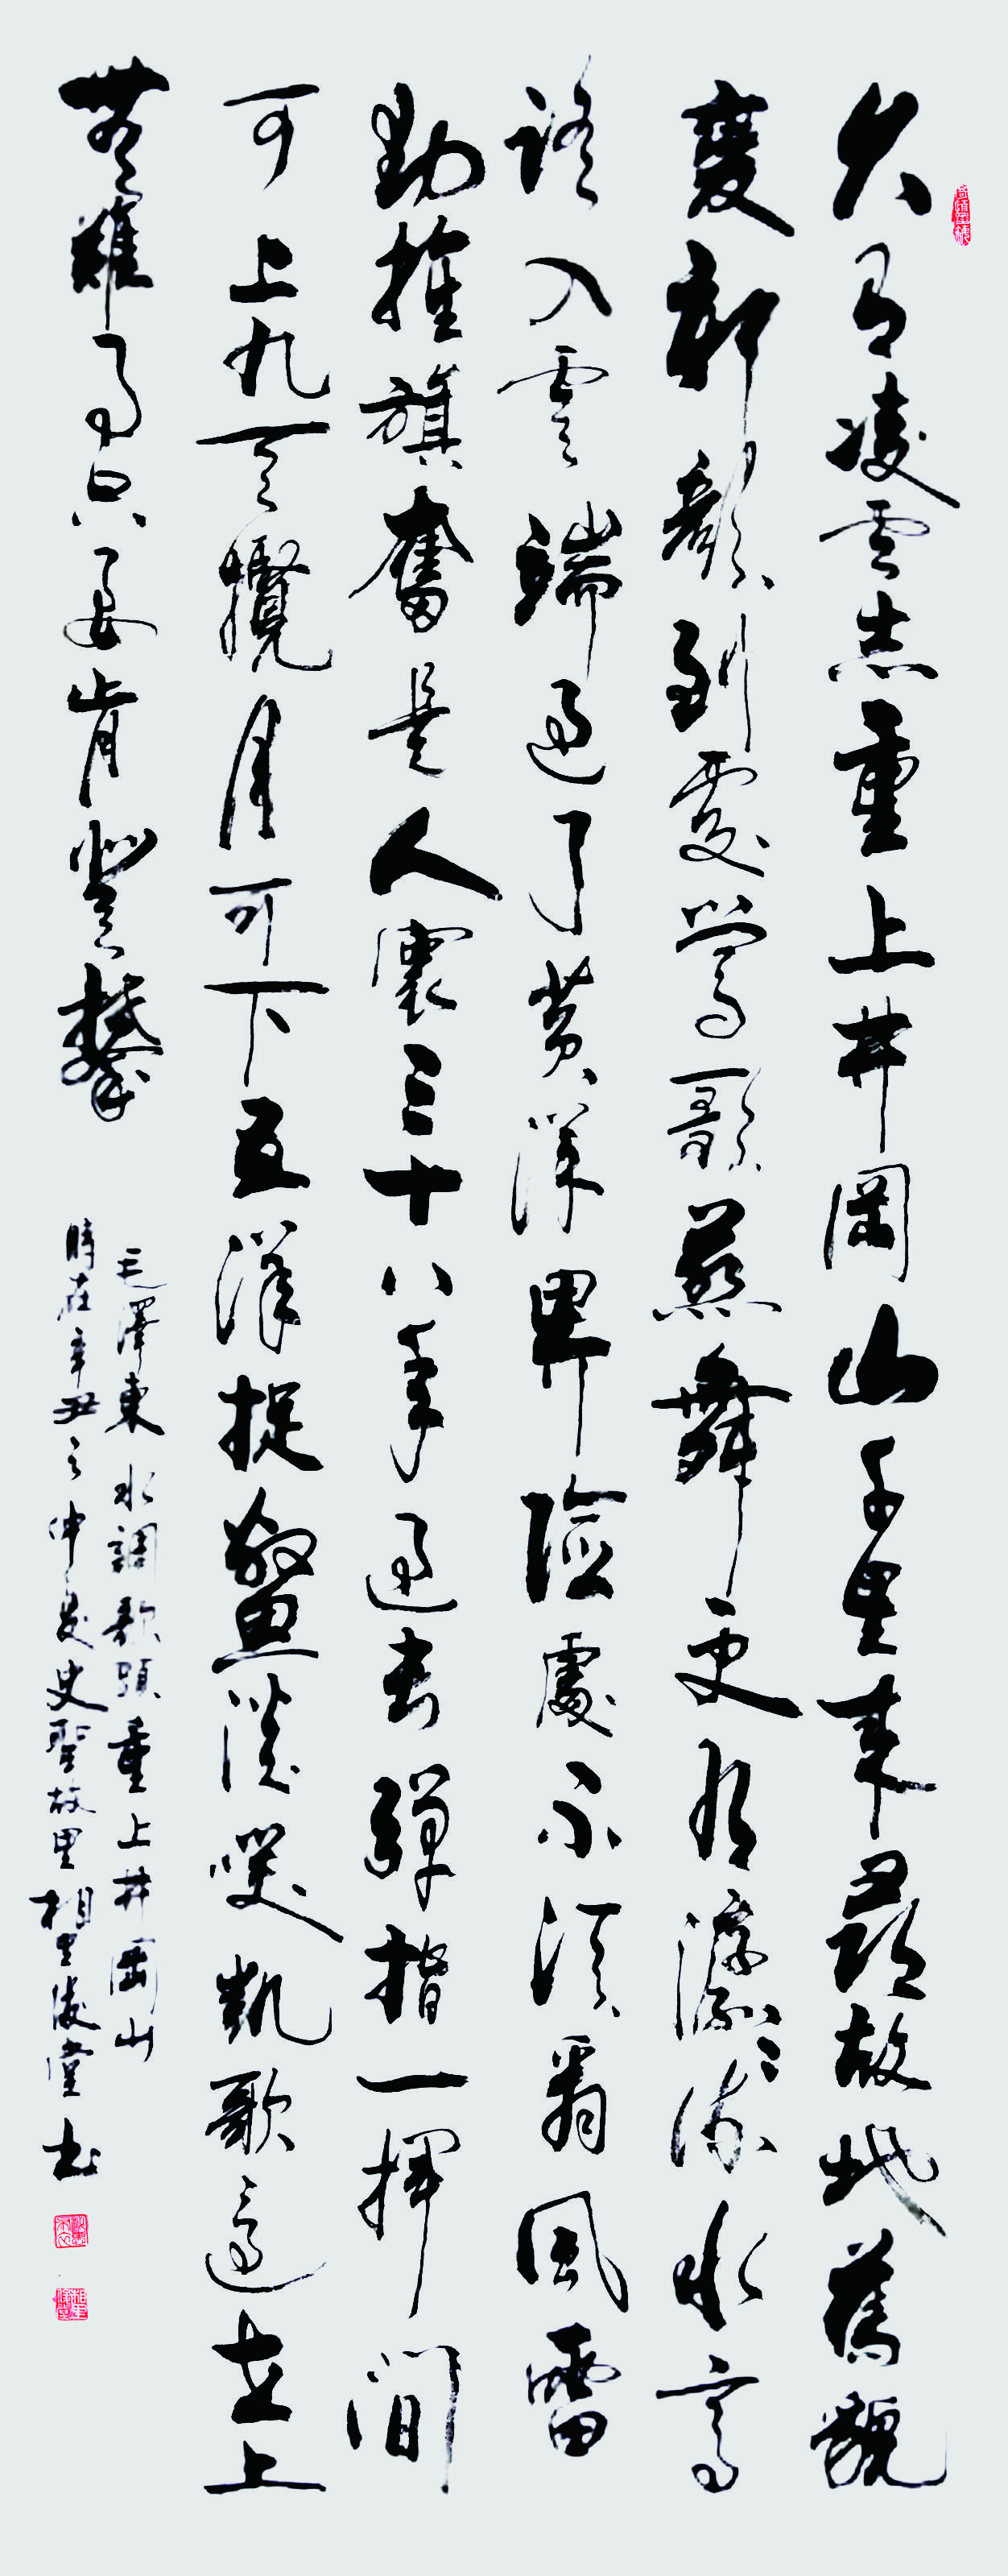 久有凌雲志重上井岡山千里來尋故地舊貌
變新顏到處鶯歌燕舞更有潺々流水高
路入雲端過了黃洋界險處不須看風雷
動旌旗奮是人寰三十八年過去彈指一揮間
可上九天攬月可下五洋捉鱉談笑凱歌還世上
無難事只要肯登攀
毛澤東水調歌頭重上井岡山
時在辛丑之仲夏史聖故里相里俊堂书